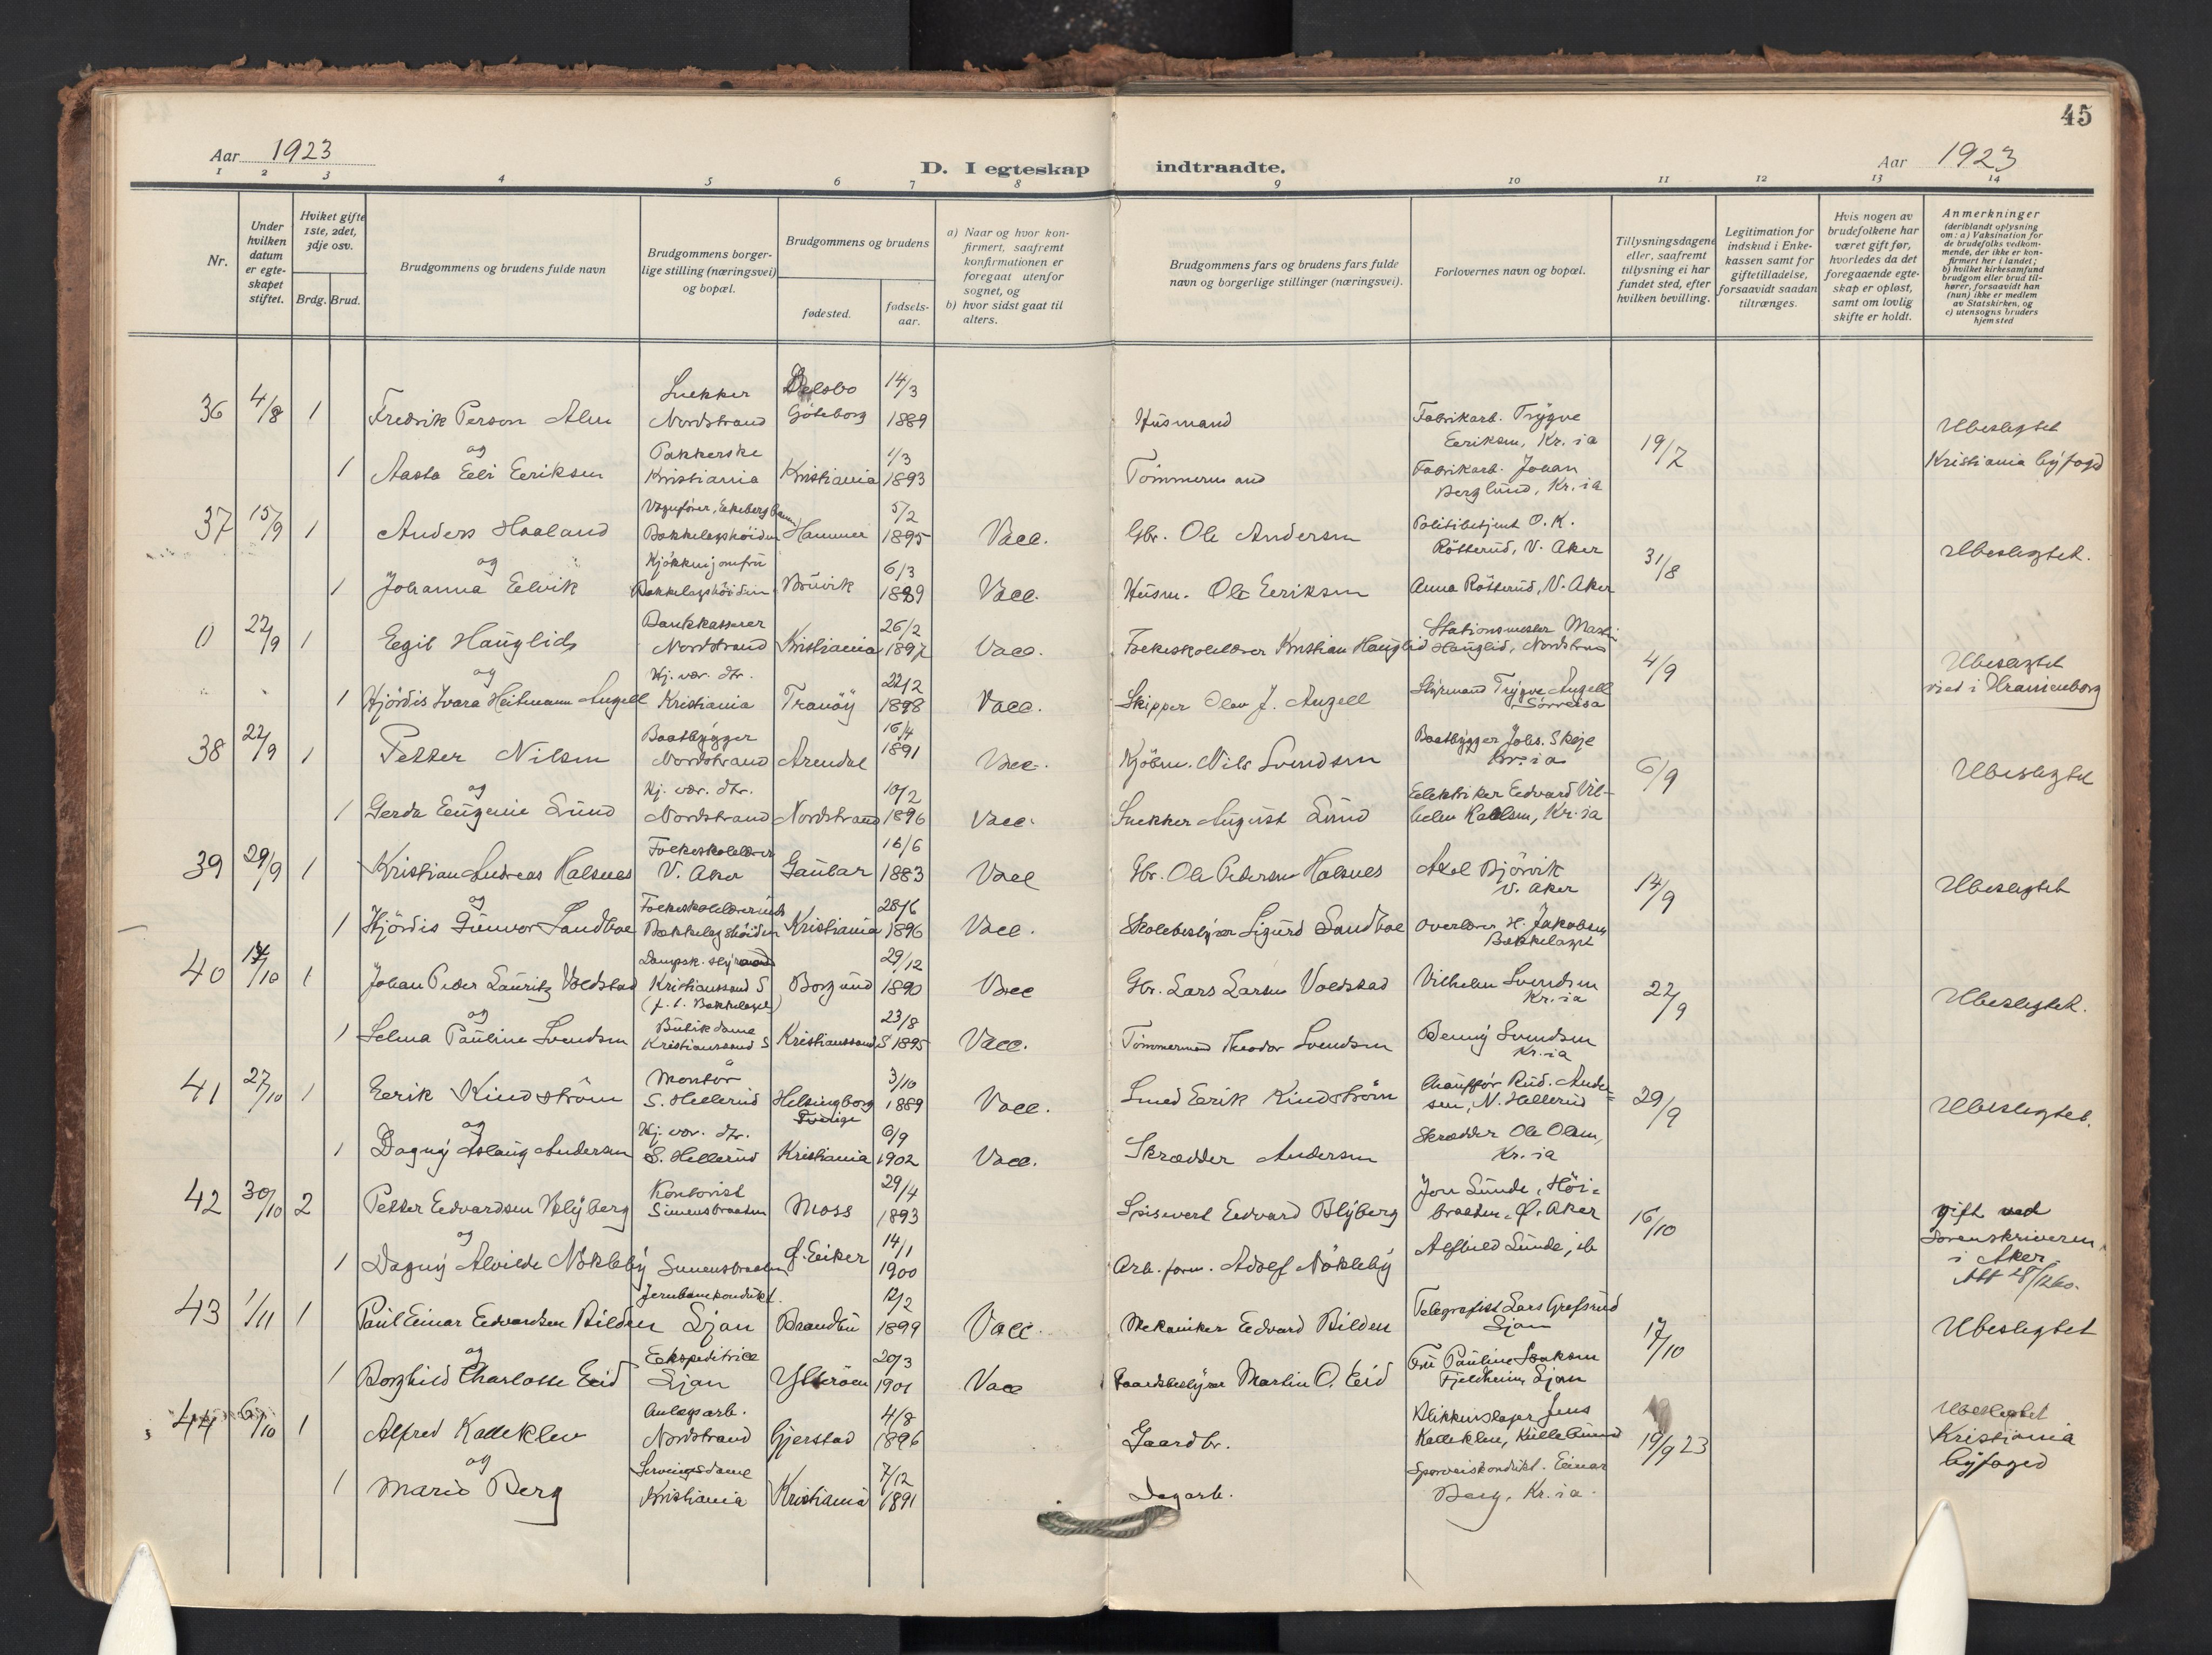 45
Aar 1923
D. I egteskap indtraadte.
Aar 1923
1 2 3 4 5 6 7 8 9 10 11 12 13 14
Nr.
Under hvilken datum er egteskapet stiftet.
Hvilket gifte 1ste, 2det, 3dje osv.
Brdg. Brud.
Brudgommens og brudens fulde navn
Brudgommens borgerlige stilling (næringsvei) og bopæl.
Brudgommens og brudens
fødested.
fødselsaar.
a) Naar og hvor konfirmert, saafremt konfirmationen er foregaat utenfor sognet, og
b) hvor sidst gaat til alters.
Brudgommens fars og brudens fars fulde navn og borgerlige stillinger (næringsvei).
Forlovernes navn og bopæl.
Tillysningsdagene eller, saafremt tillysning ei har fundet sted, efter hvilken bevilling.
Legitimation for indskud i Enkekassen samt for giftetilladelse, forsaavidt saadan tiltrænges.
Hvis nogen av brudefolkene har været gift før, hvorledes da det foregaaende egteskap er opløst, samt om lovlig skifte er holdt.
Anmerkninger (deriblandt oplysning om: a) Vaksination for de brudefolks vedkommende, der ikke er konfirmert her i landet; b) hvilket kirkesamfund brudgom eller brud tilhører, forsaavidt han (hun) ikke er medlem av Statskirken, og c) utensogns bruders hjemsted
36 4/8 1 Fredrik Person Alm Snekker Nordstrand Delsbo Göteborg 14/3 1889 Husmand Fabrikarb. Trygve Eeriksen, Kr.ia 19/7 Ubeslegtet
og
1 Aasta Elvi Eeriksen Pakkerske Kristiania Kristiania 1/3 1893 Tömmermand Fabrikarb. Johan Berglund, Kr.ia Kristiania byfogd
37 15/9 1 Anders Haaland Vognfører, Ekebergbanen Bækkelagshöiden Hammer 5/2 1895 Vacc. Gbr. Ole Andersen Politibetjent O. K. Rötterud, V. Aker 31/8 Ubeslegtet.
og
1 Johanna Eelvik Kjökkenjomfru Bækkelagshöiden Bruvik 6/3 1889 Vacc. Husm. Ole Eeriksen Anna Rötterud, V. Aker
0 22/9 1 Eegil Hauglid Bankkasserer Nordstrand Kristiania 26/2 1897 Vacc. Folkeskolelærer Kristian Hauglid Stationsmester Martin Hauglid, Nordstrand 4/9 Ubeslegtet
og
1 Hjördis Ivara Heitmann Angell Hj. vær. dtr. Kristiania Tranöy 22/2 1898 Vacc. Skipper Olav J. Angell Styrmand Trygve Angell Sørreisa viet i Uranienborg
38 22/9 1 Petter Nilsen Baatbygger Nordstrand Arendal 16/4 1891 Vacc. Kjöbm. Nils Svendsen Baatbygger Johs. Skeje Kr.ia 6/9 Ubeslegtet
og
1 Gerda Eugenie Lund Hj. vær. dtr. Nordstrand Nordstrand 10/2 1896 Vacc. Snekker August Lund Eelektriker Eedvard Vilhelm Karlsen, Kr.ia
39 29/9 1 Kristian Andreas Halsnes Folkeskolelærer V. Aker Gaular 16/6 1883 Vacc Gbr. Ole Pedersen Halsnes Axel Björvik V. Aker 14/9 Ubeslegtet
og
1 Hjördis Gunvor Sandboe Folkeskolelærerinde Bækkelagshöiden Kristiania 28/6 1896 Vacc. Skolebestyrer Sigurd Sandboe Overlærer H. Jakobsen Bækkelaget
40 14/10 1 Johan Peder Lauritz Voldstad Dampsk. styrmand Kristianssund S (f. t. Bækkelaget) Borgund 29/12 1890 Vacc Gbr. Lars Larsen Voldstad Vilhelm Svendsen Kr.ia 22/9 Ubeslegtet.
og
1 Selma Pauline Svendsen Butikdame Kristianssand S Kristianssand S 23/8 1895 Vacc. Tömmermand Theodor Svendsen Benny Svendsen Kr.ia
41 27/10 1 Eerik Kindström Montör S. Hellerud Helsingborg Sverige 3/10 1889 Vacc. Smed Eerik Kindström Chauffør Rud. Andersen, N. Hellerud 29/9 Ubeslegtet.
og
1 Dagny Aslaug Andersen Hj. vær. dtr. S. Hellerud Kristiania 6/9 1902 Vacc. Skrædder Andersen Skrædder Ole Olsen, Kr.ia
42 30/10 2 Petter Eedvardsen Blyberg Kontorist Simensbraaten Moss 29/4 1893 Spisevert Eedvard Blyberg Jon Sunde, Höibraaten, Ø. Aker 16/10 gift ved Sorenskriveren i Aker
og
1 Dagny Alvilde Nökleby Simensbraaten Ø. Eiker 14/1 1900 Arb. form. Adolf Nökleby Alfhild Sunde, ib
43 1/11 1 Paul Einar Eedvardsen Bilden Jernbanekondukt. Ljan Brandbu 12/2 1899 Vacc. Mekaniker Eedvard Bilden Telegrafist Lars Grefsrud Ljan 17/10 Ubeslegtet
og
1 Borghild Charlotte Eeid Eekspeditrice Ljan Ytterøen 20/3 1901 Vacc Gaardsbestyrer Martin O. Eeid Fru Pauline Isaksen Fjeldheim, Ljan
44 6/10 1 Alfred Kalleklev Anlægsarb. Nordstrand Gjerstad 4/8 1896 Gaardbr. Blikkenslager Jens Kalleklev, Kullebund 19/9 23 Ubeslegtet Kristiania byfoged
og
1 Marie Berg Serveringsdame Kristiania Kristiania 7/12 1891 Dagarb. Sporveiskondukt. Einar Berg, Kr.ia.